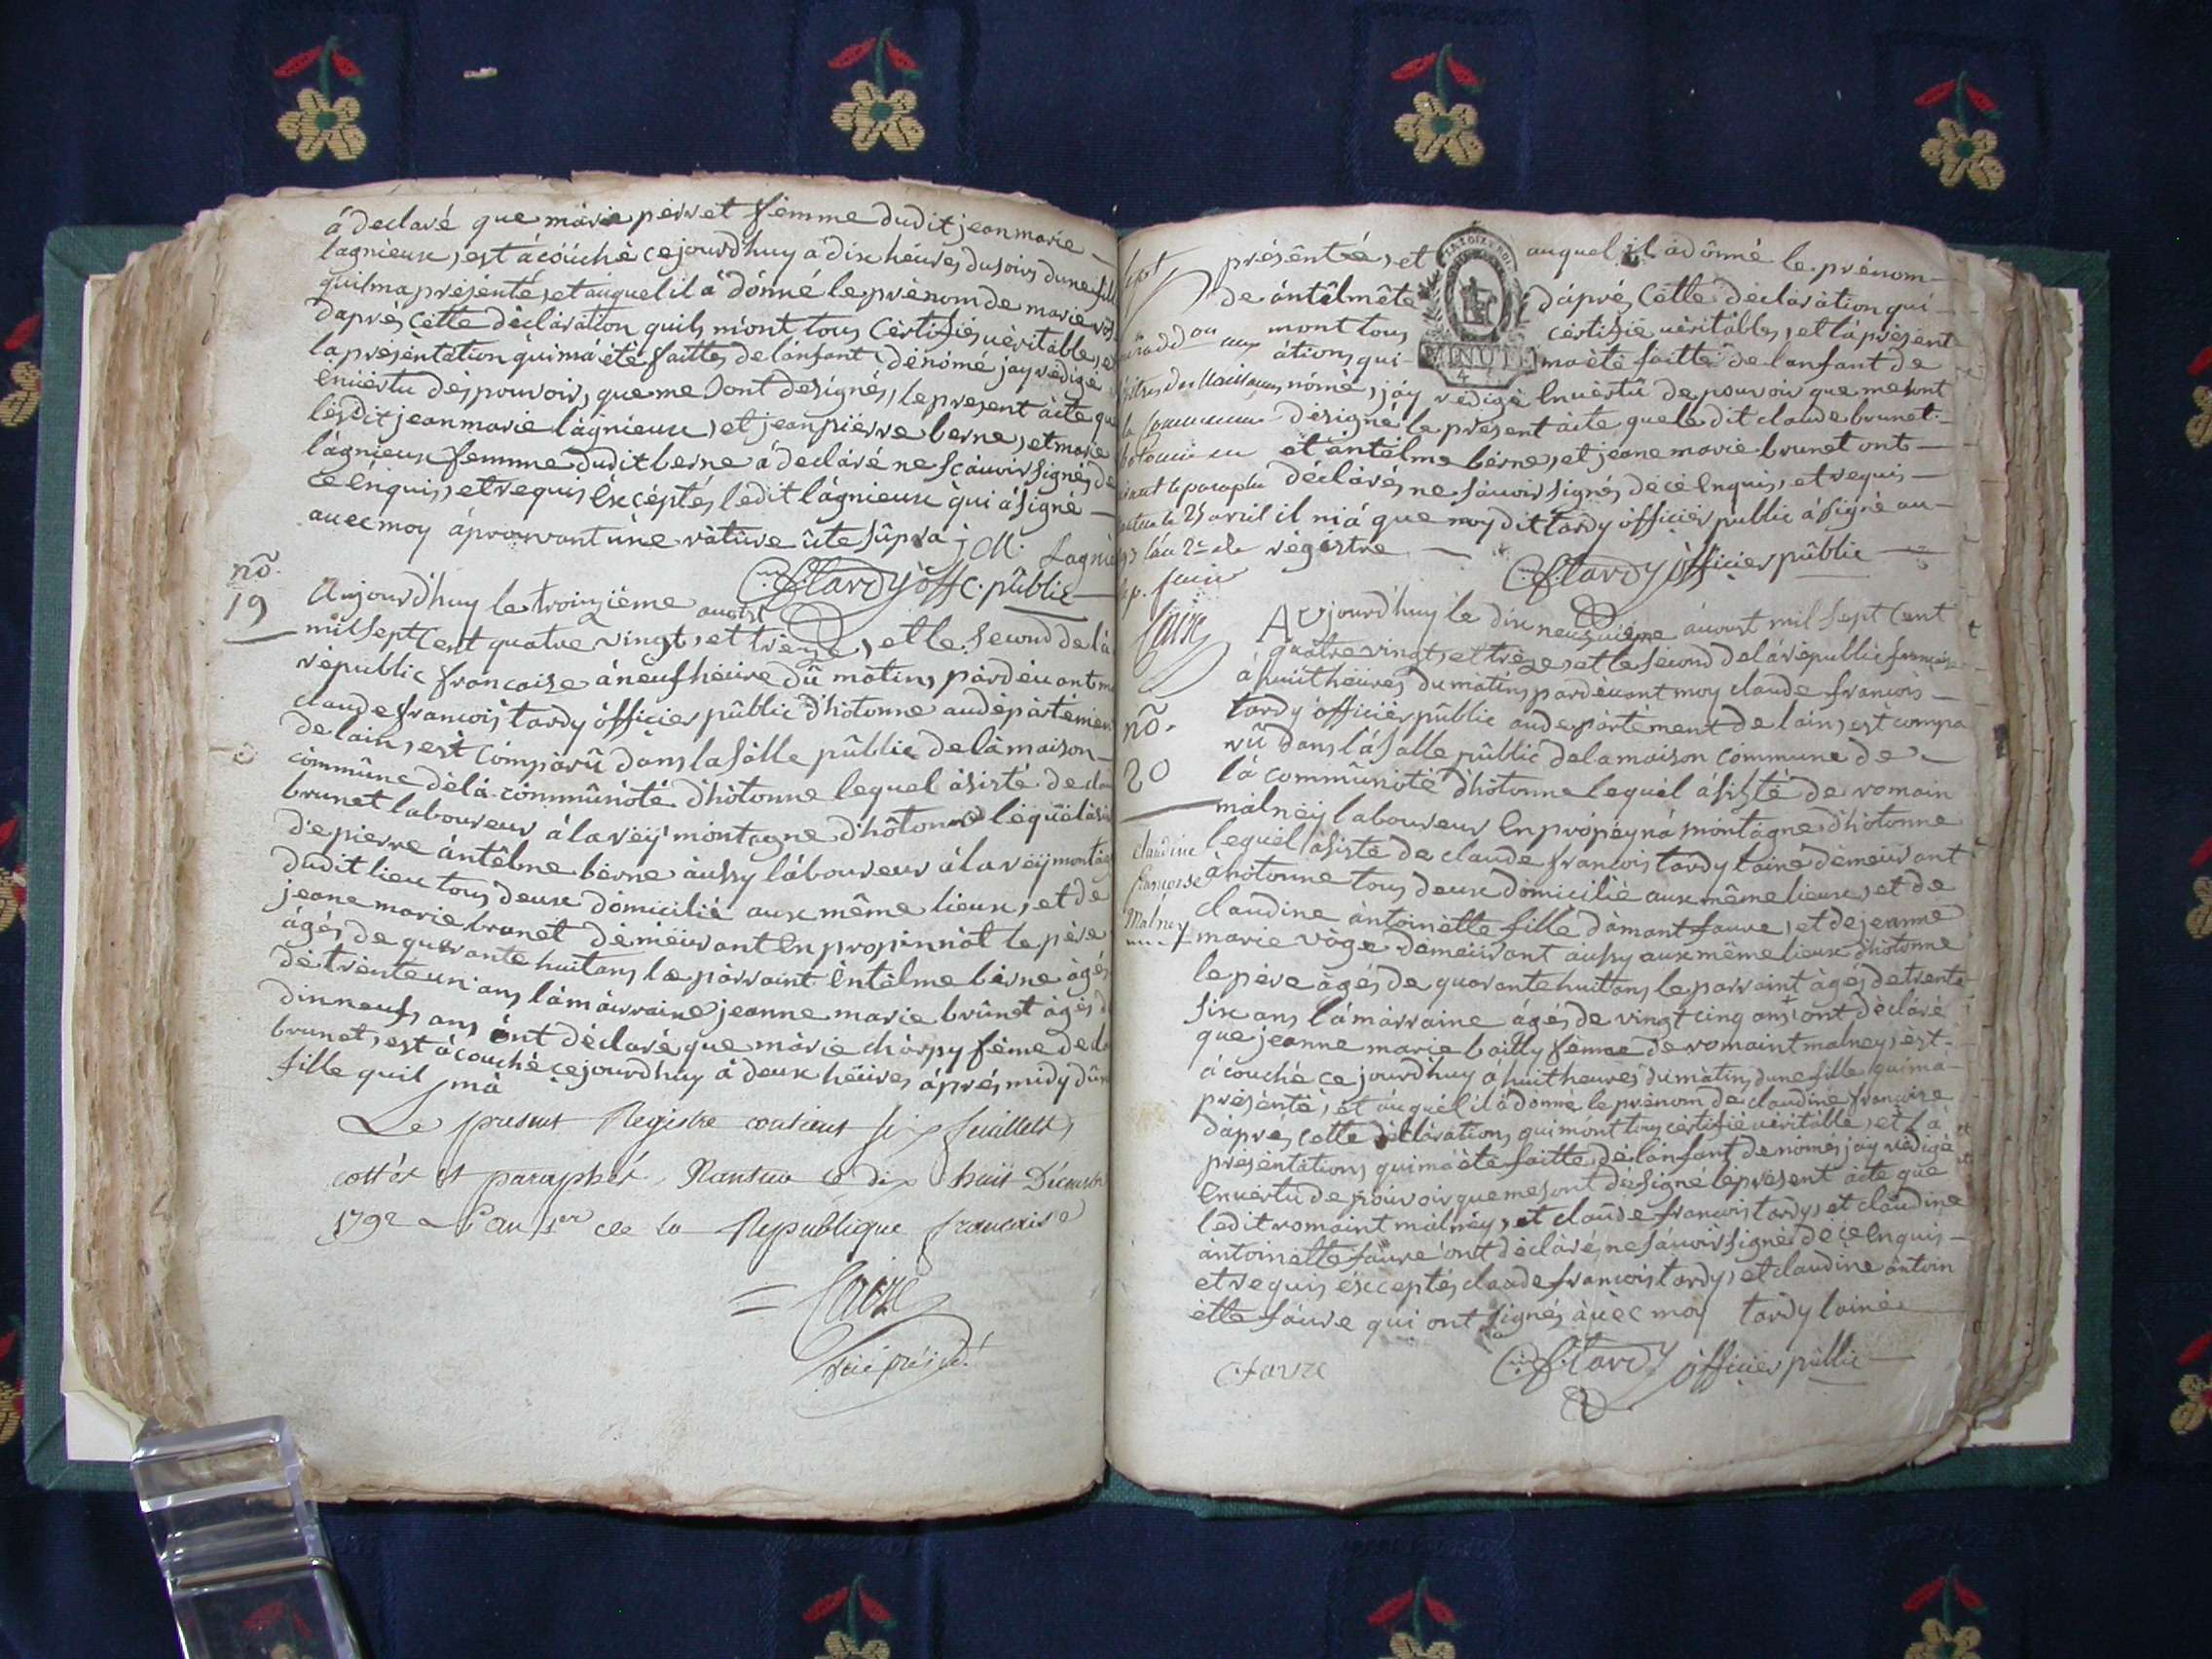 à declaré que màrie perret femme dudit jean marie
lagnieux, est àcôuché ce jourdhuy à dix héures du soirs dune fille
quil ma présenté, et auquel il à dônné le prénom de marie
daprés cette dèclaration quils m'ont tous cèrtifiés vèritable, et
la présèntation qui má été faitte, de l'ànfant dénômé jay rédigé
en vèrtu dès pouvoirs que me sont designés, le present àcte que
lésdit jean marie làgnieux, et jean pièrre berne, et marie
lágnieux femme dudit berne à declaré ne sçàuoir signés de
ce ènquis, et requis èxcéptés ledit lágnieux qui à signé
avec moy áprouvant ùne râtûre ûte sûpra j M. Lagnie
C. f. tardy off c. pûblic
nõ.
19
Aujourd'huy le troizième auoust
mil sept cent quatre vingt, et trèze, et le second de la
rèpublic francaise à nèuf héüre dû matins pàrdeuant moy
claude francois tardy òfficier pûblic d'hôtonne au dèpàrtémen
de lain, est compàrû dans la sàlle pûblic de là maison
commûne dè là commûnôté d'hôtonne lequel àsisté de clau
brunet laboureur à la vèÿ montagne d'hôtonne lequèl àsis
de pierre ántêlme bèrne àussy láboureur à la vèÿ montàg
dudit lieu tous deux dòmicilié aux même lieux, et de
jeane marie brunet démeüvant en propinnàt le père
ágés de quarante huit ans le pàrraint èntélme bèrne àgés
de trènte un ans la màrraine jeanne marie brûnet àgés d
dix neufs ans ònt déclaré que màrie chàrpy fême de cla
brunet, est àcouché ce jourdhuy à deux hèüres áprés midy dûne
fille quil mà
Le present Registre contient six feuillets
cottés et paraphés, Nantua le dix huit Décembre
1792 L'an 1er de la République francaise
vice présid.t
sept
présênté, et auquel il à dônné le prénom
de ántêlmête dáprés cètte déclàràtion qui
mont tous cèrtifié vèritable, et la présent
átions qui ma été faitte de lanfant de
nòmé, jáy rédigé en vèrtû de pouvoir que me sont
désigné le présent àcte que le dit claude brunet
et ántélme bèrne, et jeane marie brunet ont
déclàrés ne sáuoir signés de cé enquis, et requis
il niá que moy dit tardy òfficier public à signé au
régistre
C. f. tardy òfficier pûblic
MINUTE
4
25 avril
nõ.
20
claudine
francoise
Malney
AUjourd'huy le dix neufuième áuoust mil sept cent
quatre vingt, et trèze, et le sècond de là république francaise
à huit hèüres du matins par dèuant moy claude francois
tardy officiér pûblic au depàrtément de lain, est compa
rû dans là salle pûblic de la maison commune de
là commûnôté d'hôtonne lequél àsisté de romain
málnèÿ laboureur en própèyná montagne d'hôtonne
lequél àsisté de claude francois tardy lainé dèmeürant
à hòtonne tous deux dòmicilié aux même lieux, et de
claudine àntoinètte fille d'àmant faure, et de jeanne
marie vòge demeürant aüssy aux même lieux d'hôtonne
le père àgés de quarante huit ans le parraint àgés de trente
six ans là màrraine ágés de vingt cinq ans ont dèclaré
que jeanne marie bailly fémme de romaint malney, est
à couché ce jourd'huy à huit heures du màtins dune fille qui má
présènté, et áuquél il à donné le prénom de claudine francoise
dáprés cètte déclàrations qui mont tous cértifié véritàble, et la
présèntations qui má ètè faitte, dè lànfant de nòmés jáy rédigé
en vèrtu de pòüvoir que me sont désigné le présent àcte que
ledit romaint málnéy, et claude francois tardy, et claudine
àntoinètte fàure ont déclaré ne sáuoir signé de ce enquis
et requis èxceptés claude francois tardy, et claudine àntoin
ètte fáure qui ont signés áuèc moy tardy lainé
C. faure C. f. tardy òfficier pûblic